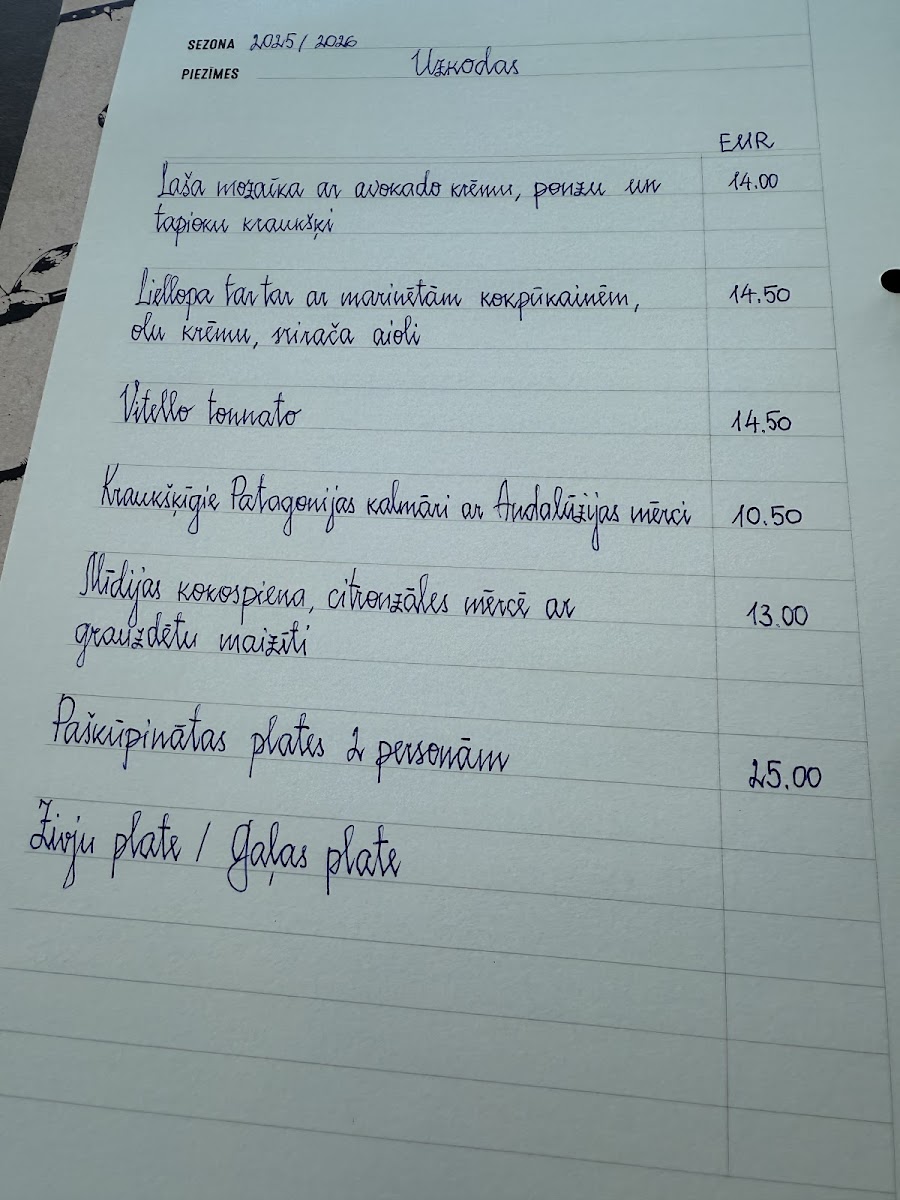 SEZONA 2025/2026
PIEZĪMES Uzkodas
EUR
Laša mozaīka ar avokado krēmu, ponzu un 14.00
tapioku kraukšķi
Liellopa tartar ar marinētām kokpūkainēm, 14.50
olu krēmu, srirača aioli
Vitello tonnato 14.50
Kraukšķīgie Patagonijas kalmāri ar Andalūzijas mērci 10.50
Mīdijas kokospiena, citronzāles mērcē ar 13.00
grauzdētu maizīti
Paškūpinātas plates 2 personām 25.00
Zivju plate / Gaļas plate